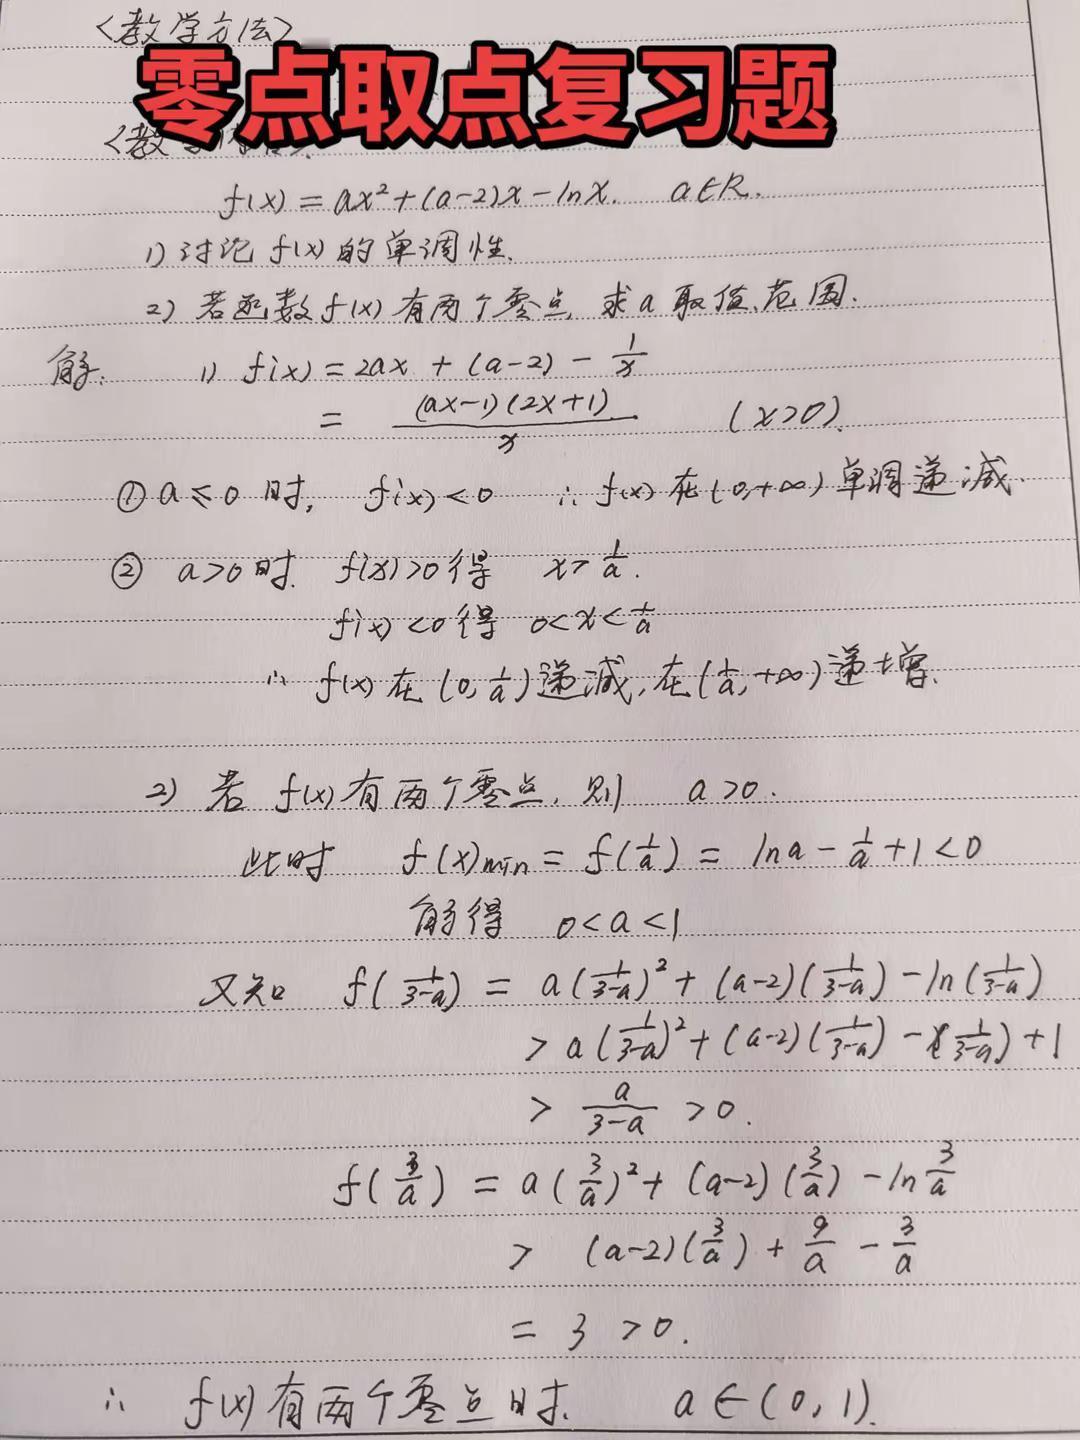 <教学方法>
零点取点复习题
<教学
f(x) = ax² + (a-2)x - lnx. a∈R.
1) 讨论 f(x) 的单调性.
2) 若函数 f(x) 有两个零点, 求 a 取值范围.
解: 1) f'(x) = 2ax + (a-2) - 1/x
= (ax-1)(2x+1)/x (x>0).
① a≤0 时, f'(x)<0 ∴ f(x) 在 (0,+∞) 单调递减.
② a>0 时. f'(x)>0 得 x>1/a.
f'(x)<0 得 0<x<1/a
∴ f(x) 在 (0,1/a) 递减, 在 (1/a,+∞) 递增.
2) 若 f(x) 有两个零点, 则 a>0.
此时 f(x)min = f(1/a) = lna - 1/a + 1 < 0
解得 0<a<1
又知 f(1/(3-a)) = a(1/(3-a))² + (a-2)(1/(3-a)) - ln(1/(3-a))
> a(1/(3-a))² + (a-2)(1/(3-a)) - (1/(3-a)) + 1
> a/(3-a) > 0.
f(3/a) = a(3/a)² + (a-2)(3/a) - ln 3/a
> (a-2)(3/a) + 9/a - 3/a
= 3 > 0.
∴ f(x) 有两个零点时. a∈(0,1).